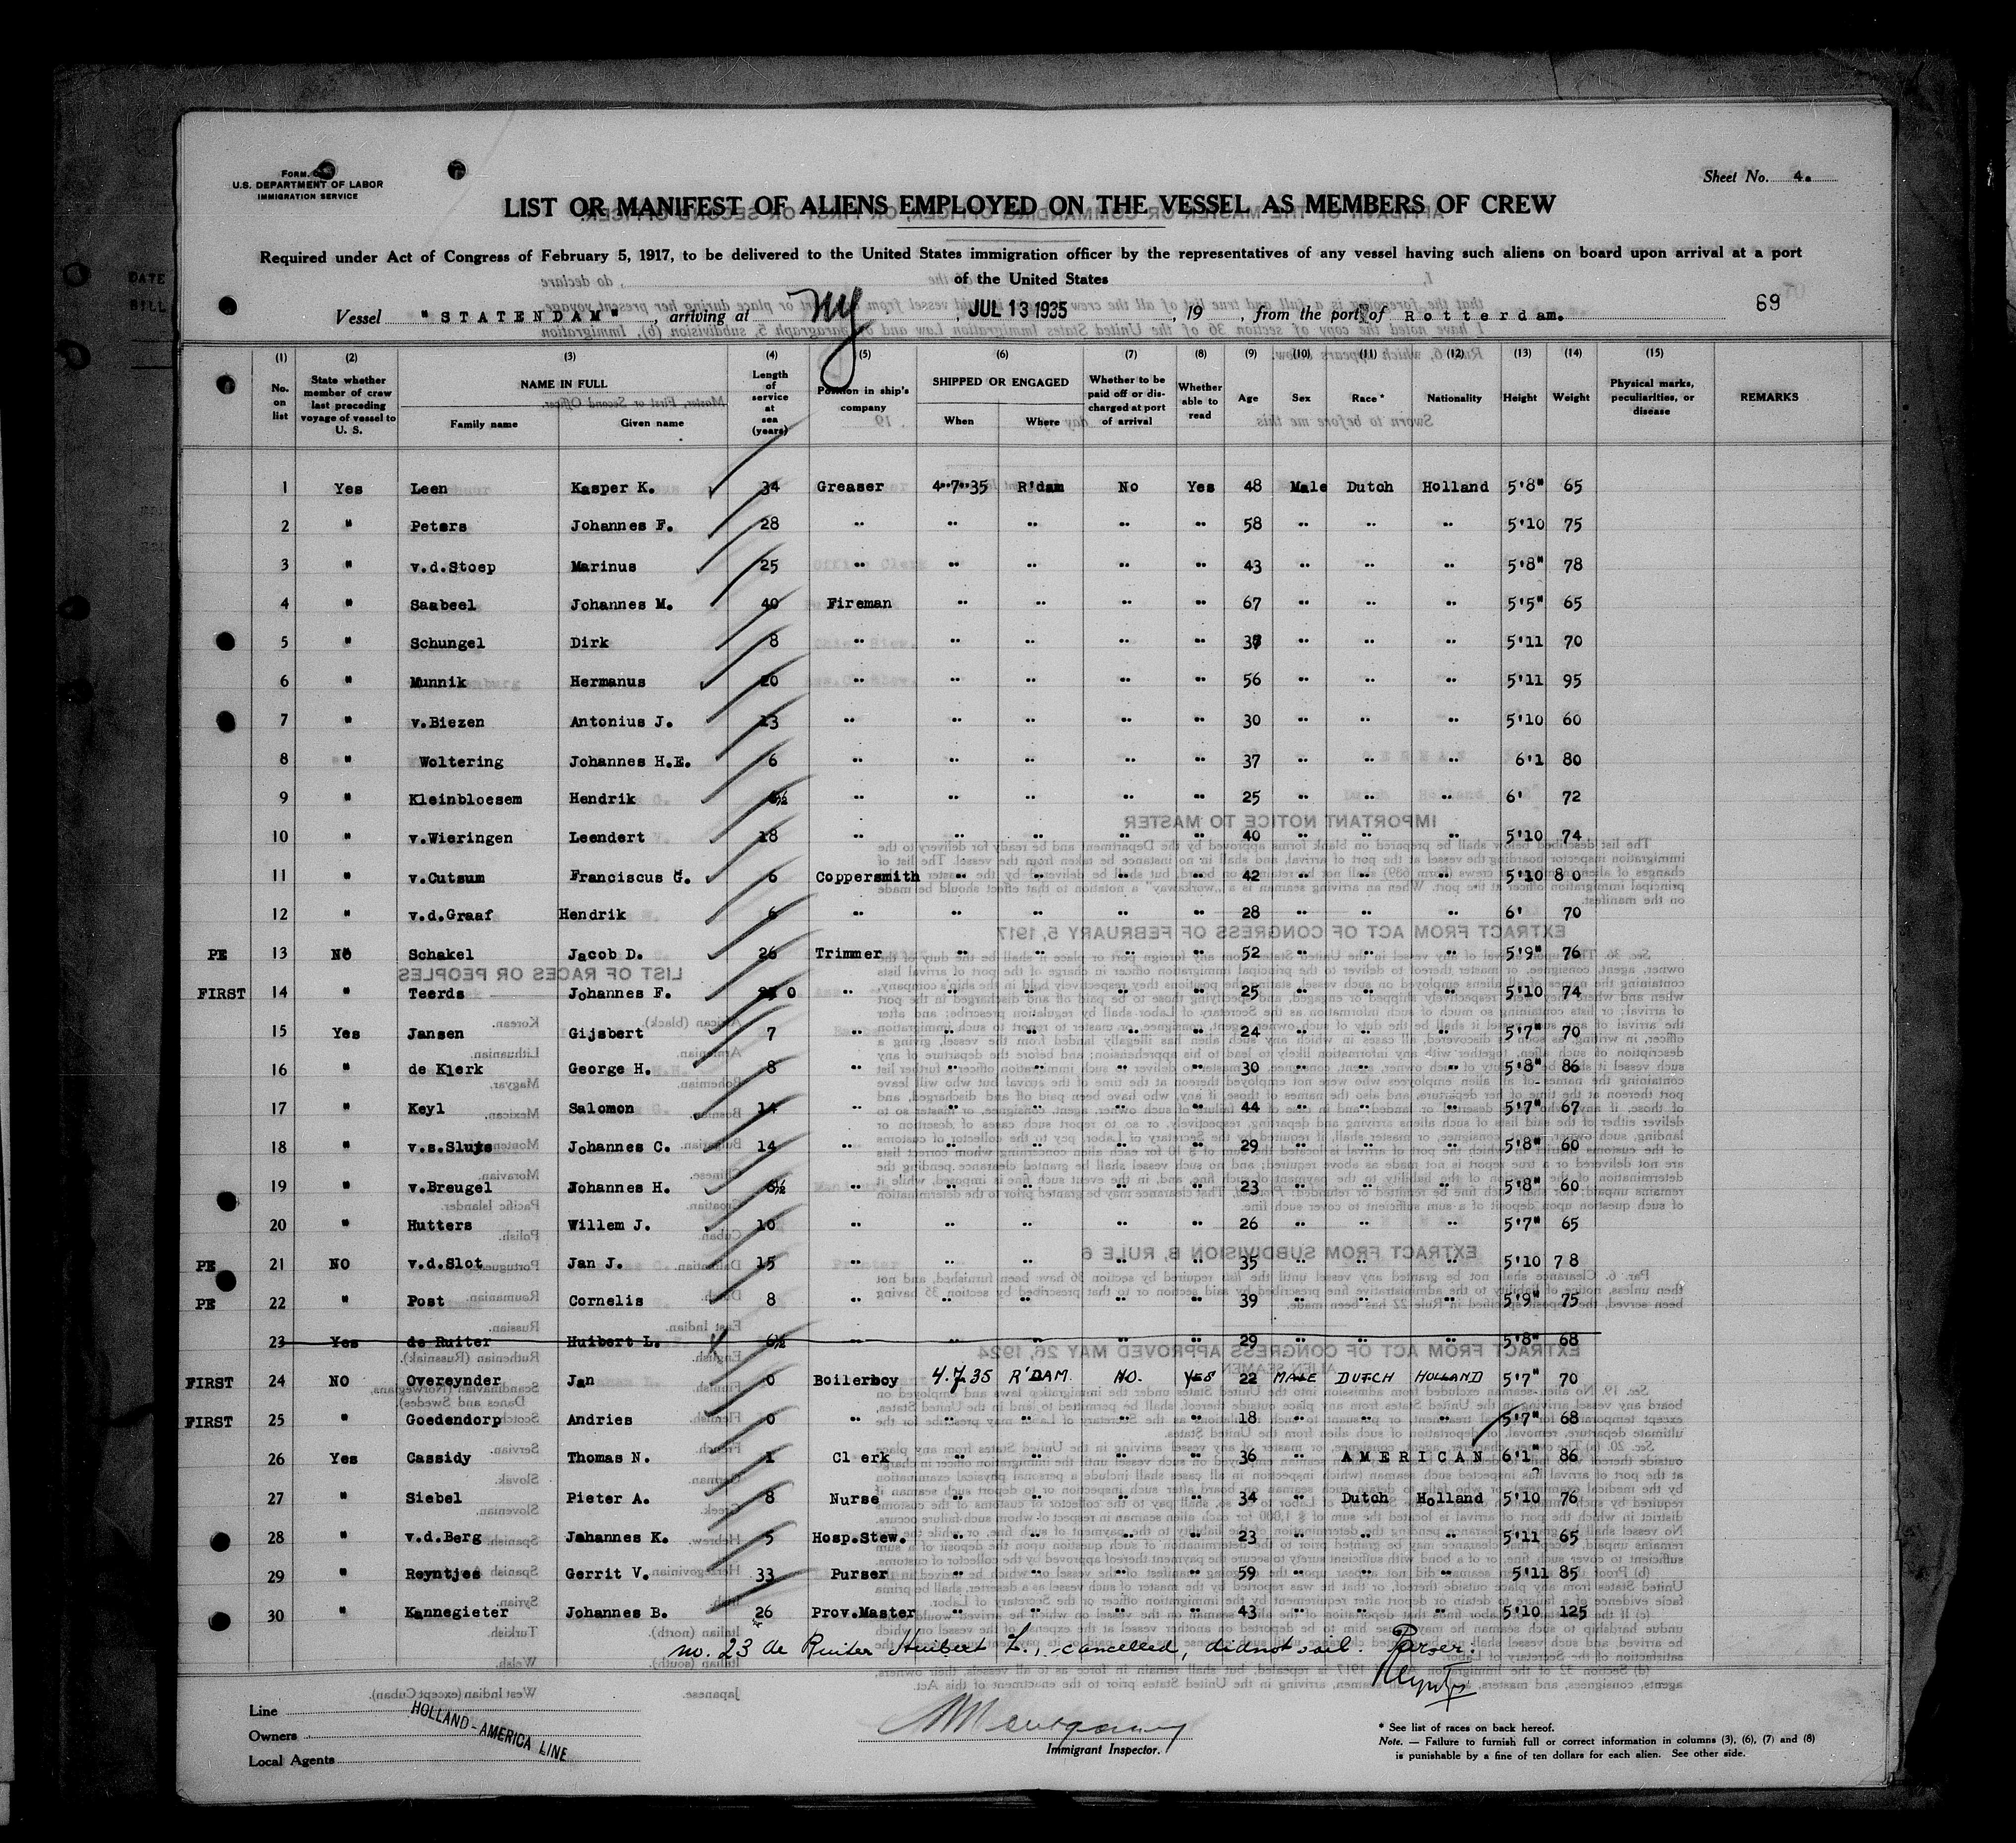 FORM.
U.S. DEPARTMENT OF LABOR
IMMIGRATION SERVICE
Sheet No. 4.
LIST OR MANIFEST OF ALIENS EMPLOYED ON THE VESSEL AS MEMBERS OF CREW
Required under Act of Congress of February 5, 1917, to be delivered to the United States immigration officer by the representatives of any vessel having such aliens on board upon arrival at a port
of the United States
Vessel "STATENDAM", arriving at NY, JUL 13 1935, 19 , from the port of Rotterdam. 69
(1) (2) (3) (4) (5) (6) (7) (8) (9) (10) (11) (12) (13) (14) (15)
No. on list State whether member of crew last preceding voyage of vessel to U. S. NAME IN FULL Family name Given name Length of service at sea (years) Position in ship's company SHIPPED OR ENGAGED When Where Whether to be paid off or discharged at port of arrival Whether able to read Age Sex Race * Nationality Height Weight Physical marks, peculiarities, or disease REMARKS
1 Yes Leen Kasper K. 34 Greaser 4"7"35 R'dam No Yes 48 Male Dutch Holland 5'8" 65
2 " Peters Johannes F. 28 " " " " " 58 " " " 5'10 75
3 " v.d.Stoep Marinus 25 " " " " " 43 " " " 5'8" 78
4 " Saabeel Johannes M. 40 Fireman " " " " 67 " " " 5'5" 65
5 " Schungel Dirk 8 " " " " " " " " 5'11 70
6 " Munnik Hermanus 20 " " " " " 56 " " " 5'11 95
7 " v.Biezen Antonius J. 13 " " " " " 30 " " " 5'10 60
8 " Woltering Johannes H.E. 6 " " " " " 37 " " " 6'1 80
9 " Kleinbloesem Hendrik " " " " " 25 " " " 6' 72
10 " v.Wieringen Leendert 18 " " " " " 40 " " " 5'10 74
11 " v.Cutsum Franciscus G. 6 Coppersmith " " " " 42 " " " 5'10 80
12 " v.d.Graaf Hendrik 6 " " " " " 28 " " " 6' 70
PE 13 No Schakel Jacob D. 26 Trimmer " " " " 52 " " " 5'9" 76
FIRST 14 " Teerds Johannes F. 0 " " " " " 25 " " " 5'10 74
15 Yes Jansen Gijsbert 7 " " " " " 24 " " " 5'7" 70
16 " de Klerk George H. 8 " " " " " 30 " " " 5'8" 86
17 " Keyl Salomon 14 " " " " " 44 " " " 5'7" 67
18 " v.s.Sluys Johannes C. 14 " " " " " 29 " " " 5'8" 60
19 " v.Breugel Johannes H. 6½ " " " " " 23 " " " 5'8" 60
20 " Hutters Willem J. 10 " " " " " 26 " " " 5'7" 65
PE 21 NO v.d.Slot Jan J. 15 " " " " " 35 " " " 5'10 78
PE 22 " Post Cornelis 8 " " " " " 39 " " " 5'9" 75
23 Yes de Ruiter Huibert L. 6½ " " " " " 29 " " " 5'8" 68
FIRST 24 NO Overeynder Jan 0 Boilerboy 4.7.35 R'DAM. NO. YES 22 MALE DUTCH HOLLAND 5'7" 70
FIRST 25 " Goedendorp Andries 0 " " " " " 18 " " " 5'7" 68
26 Yes Cassidy Thomas N. 1 Clerk " " " " 36 " AMERICAN 6'1" 86
27 " Siebel Pieter A. 8 Nurse " " " " 34 " Dutch Holland 5'10 76
28 " v.d.Berg Jahannes K. 5 Hosp.Stew. " " " " 23 " " " 5'11 65
29 " Reyntjes Gerrit V. 33 Purser " " " " 59 " " " 5'11 85
30 " Kannegieter Johannes B. 26 Prov.Master " " " " 43 " " " 5'10 125
no. 23 de Ruiter Huibert L., cancelled, did not sail. Purser.
Reyntjes
Line
Owners HOLLAND-AMERICA LINE
Local Agents
Immigrant Inspector.
* See list of races on back hereof.
Note. — Failure to furnish full or correct information in columns (3), (6), (7) and (8)
is punishable by a fine of ten dollars for each alien. See other side.